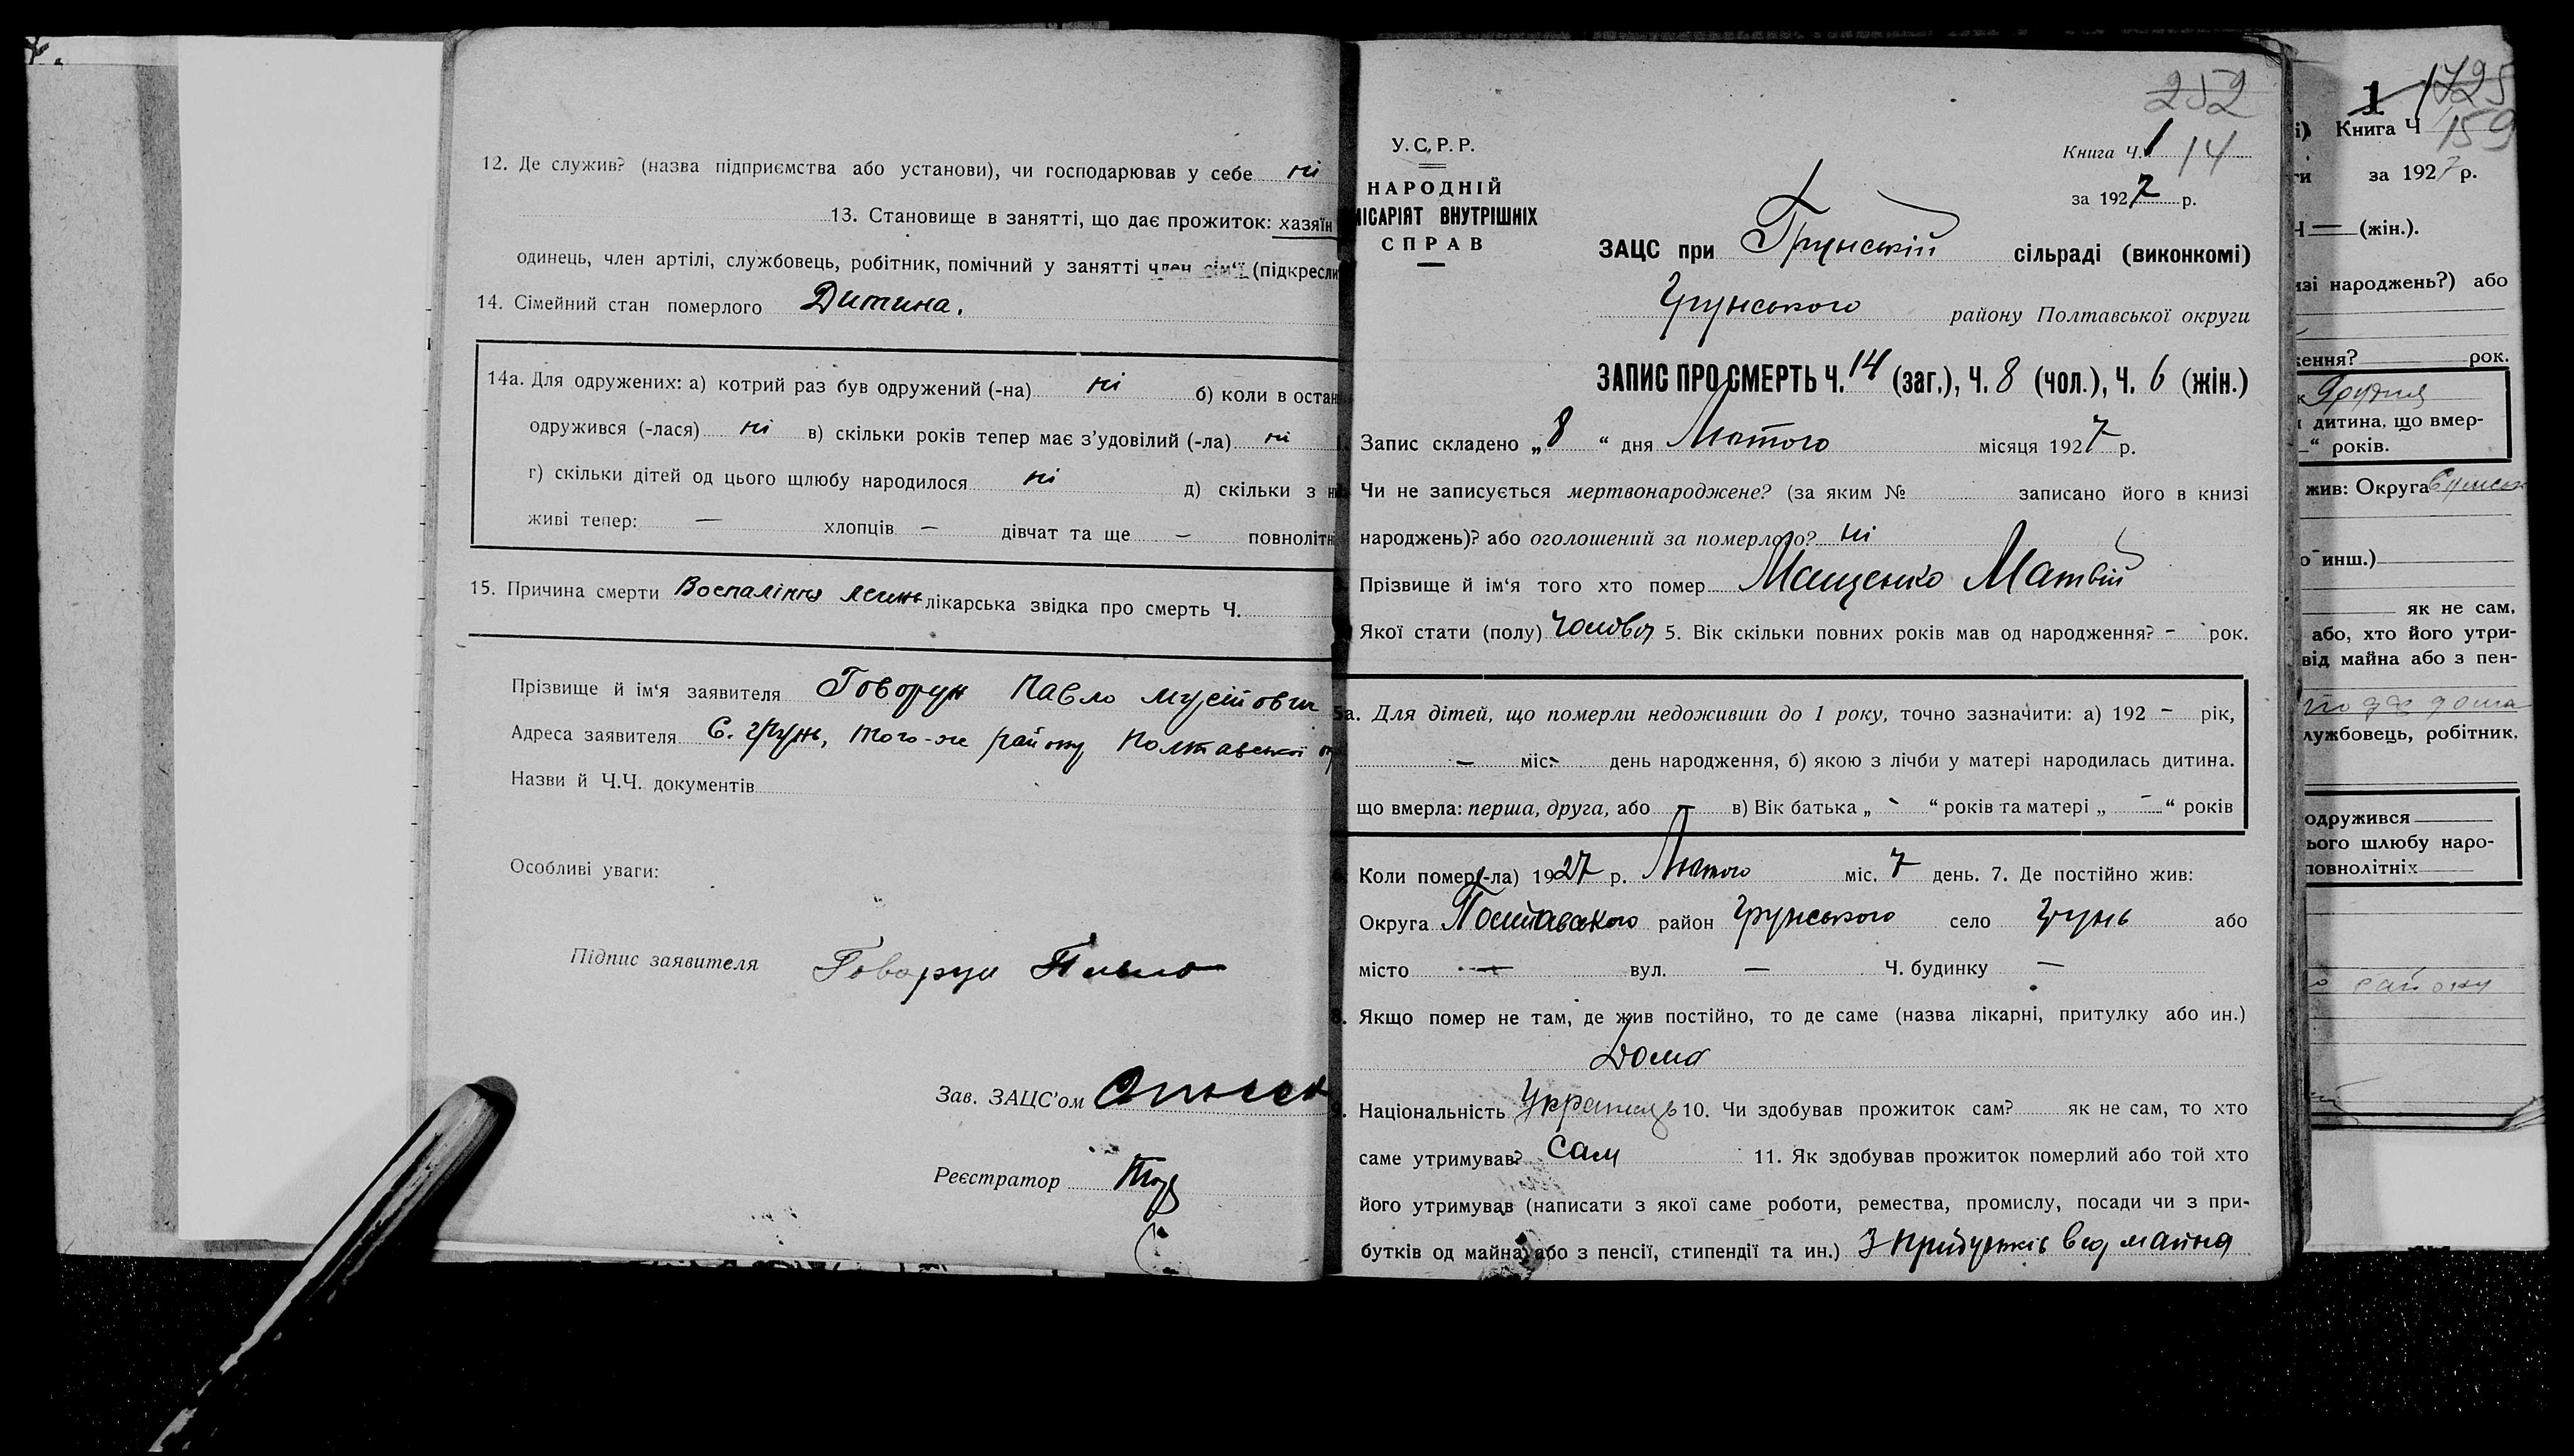 12. Де служив? (назва підприємства або установи), чи господарював у себе ні
13. Становище в занятті, що дає прожиток: хазяїн
одинець, член артілі, службовець, робітник, помічний у занятті член сім'ї (підкресли
14. Сімейний стан померлого Дитина.
14а. Для одружених: а) котрий раз був одружений (-на) ні б) коли в остан
одружився (-лася) ні в) скільки років тепер має з'удовілий (-ла) ні
г) скільки дітей од цього шлюбу народилося ні д) скільки з н
живі тепер: — хлопців — дівчат та ще — повноліт
15. Причина смерти Воспаління легень лікарська звідка про смерть Ч.
Прізвище й ім'я заявителя Говорун Павло Мусійович
Адреса заявителя С. Грунь, того-же району Полтавської ок
Назви й Ч.Ч. документів
Особливі уваги:
Підпис заявителя Говорун Павло
Зав. ЗАЦС'ом
Реєстратор
252
У.С.Р.Р.
НАРОДНІЙ
МІСАРІЯТ ВНУТРІШНІХ
СПРАВ
Книга Ч. 1 14
за 1927 р.
ЗАЦС при Грунській сільраді (виконкомі)
Грунського району Полтавської округи
ЗАПИС ПРО СМЕРТЬ Ч. 14 (заг.), Ч. 8 (чол.), Ч. 6 (жін.)
Запис складено „8“ дня Лютого місяця 1927 р.
Чи не записується мертвонароджене? (за яким № записано його в книзі
народжень)? або оголошений за померлого? ні
Прізвище й ім'я того хто помер Мащенко Матвій
Якої стати (полу) чолов 5. Вік скільки повних років мав од народження? - рок.
5а. Для дітей, що померли недоживши до 1 року, точно зазначити: а) 192 - рік,
— міс. - день народження, б) якою з лічби у матері народилась дитина.
що вмерла: перша, друга, або — в) Вік батька „ - “ років та матері „ - “ років
Коли помер(-ла) 1927 р. Лютого міс. 7 день. 7. Де постійно жив:
Округа Полтавського район Грунського село Грунь або
місто — вул. — Ч. будинку —
8. Якщо помер не там, де жив постійно, то де саме (назва лікарні, притулку або ин.)
Дома
9. Національність Українець 10. Чи здобував прожиток сам? як не сам, то хто
саме утримував? Сам 11. Як здобував прожиток померлий або той хто
його утримував (написати з якої саме роботи, ремества, промислу, посади чи з при-
бутків од майна, або з пенсії, стипендії та ин.) З прибутків від майна
1 1725
і) Книга Ч 159
ги за 1927 р.
Ч — (жін.).
изі народжень?) або
ення? рок.
к Грудня
дитина, що вмер-
—“ років.
жив: Округа Сумськ
о инш.)
як не сам,
або, хто його утри-
від майна або з пен-
лужбовець, робітник,
одружився
ього шлюбу наро-
повнолітніх
району